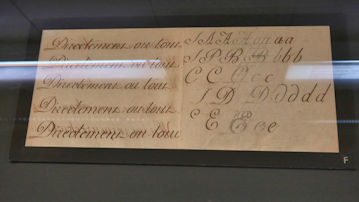 Directement ou tout
Directement ou tout
Directement ou tout
Directement ou tout
Directement ou tout
A A A a a a
P B B b b b
C C C c c
D D d d d d
C E E e e
F